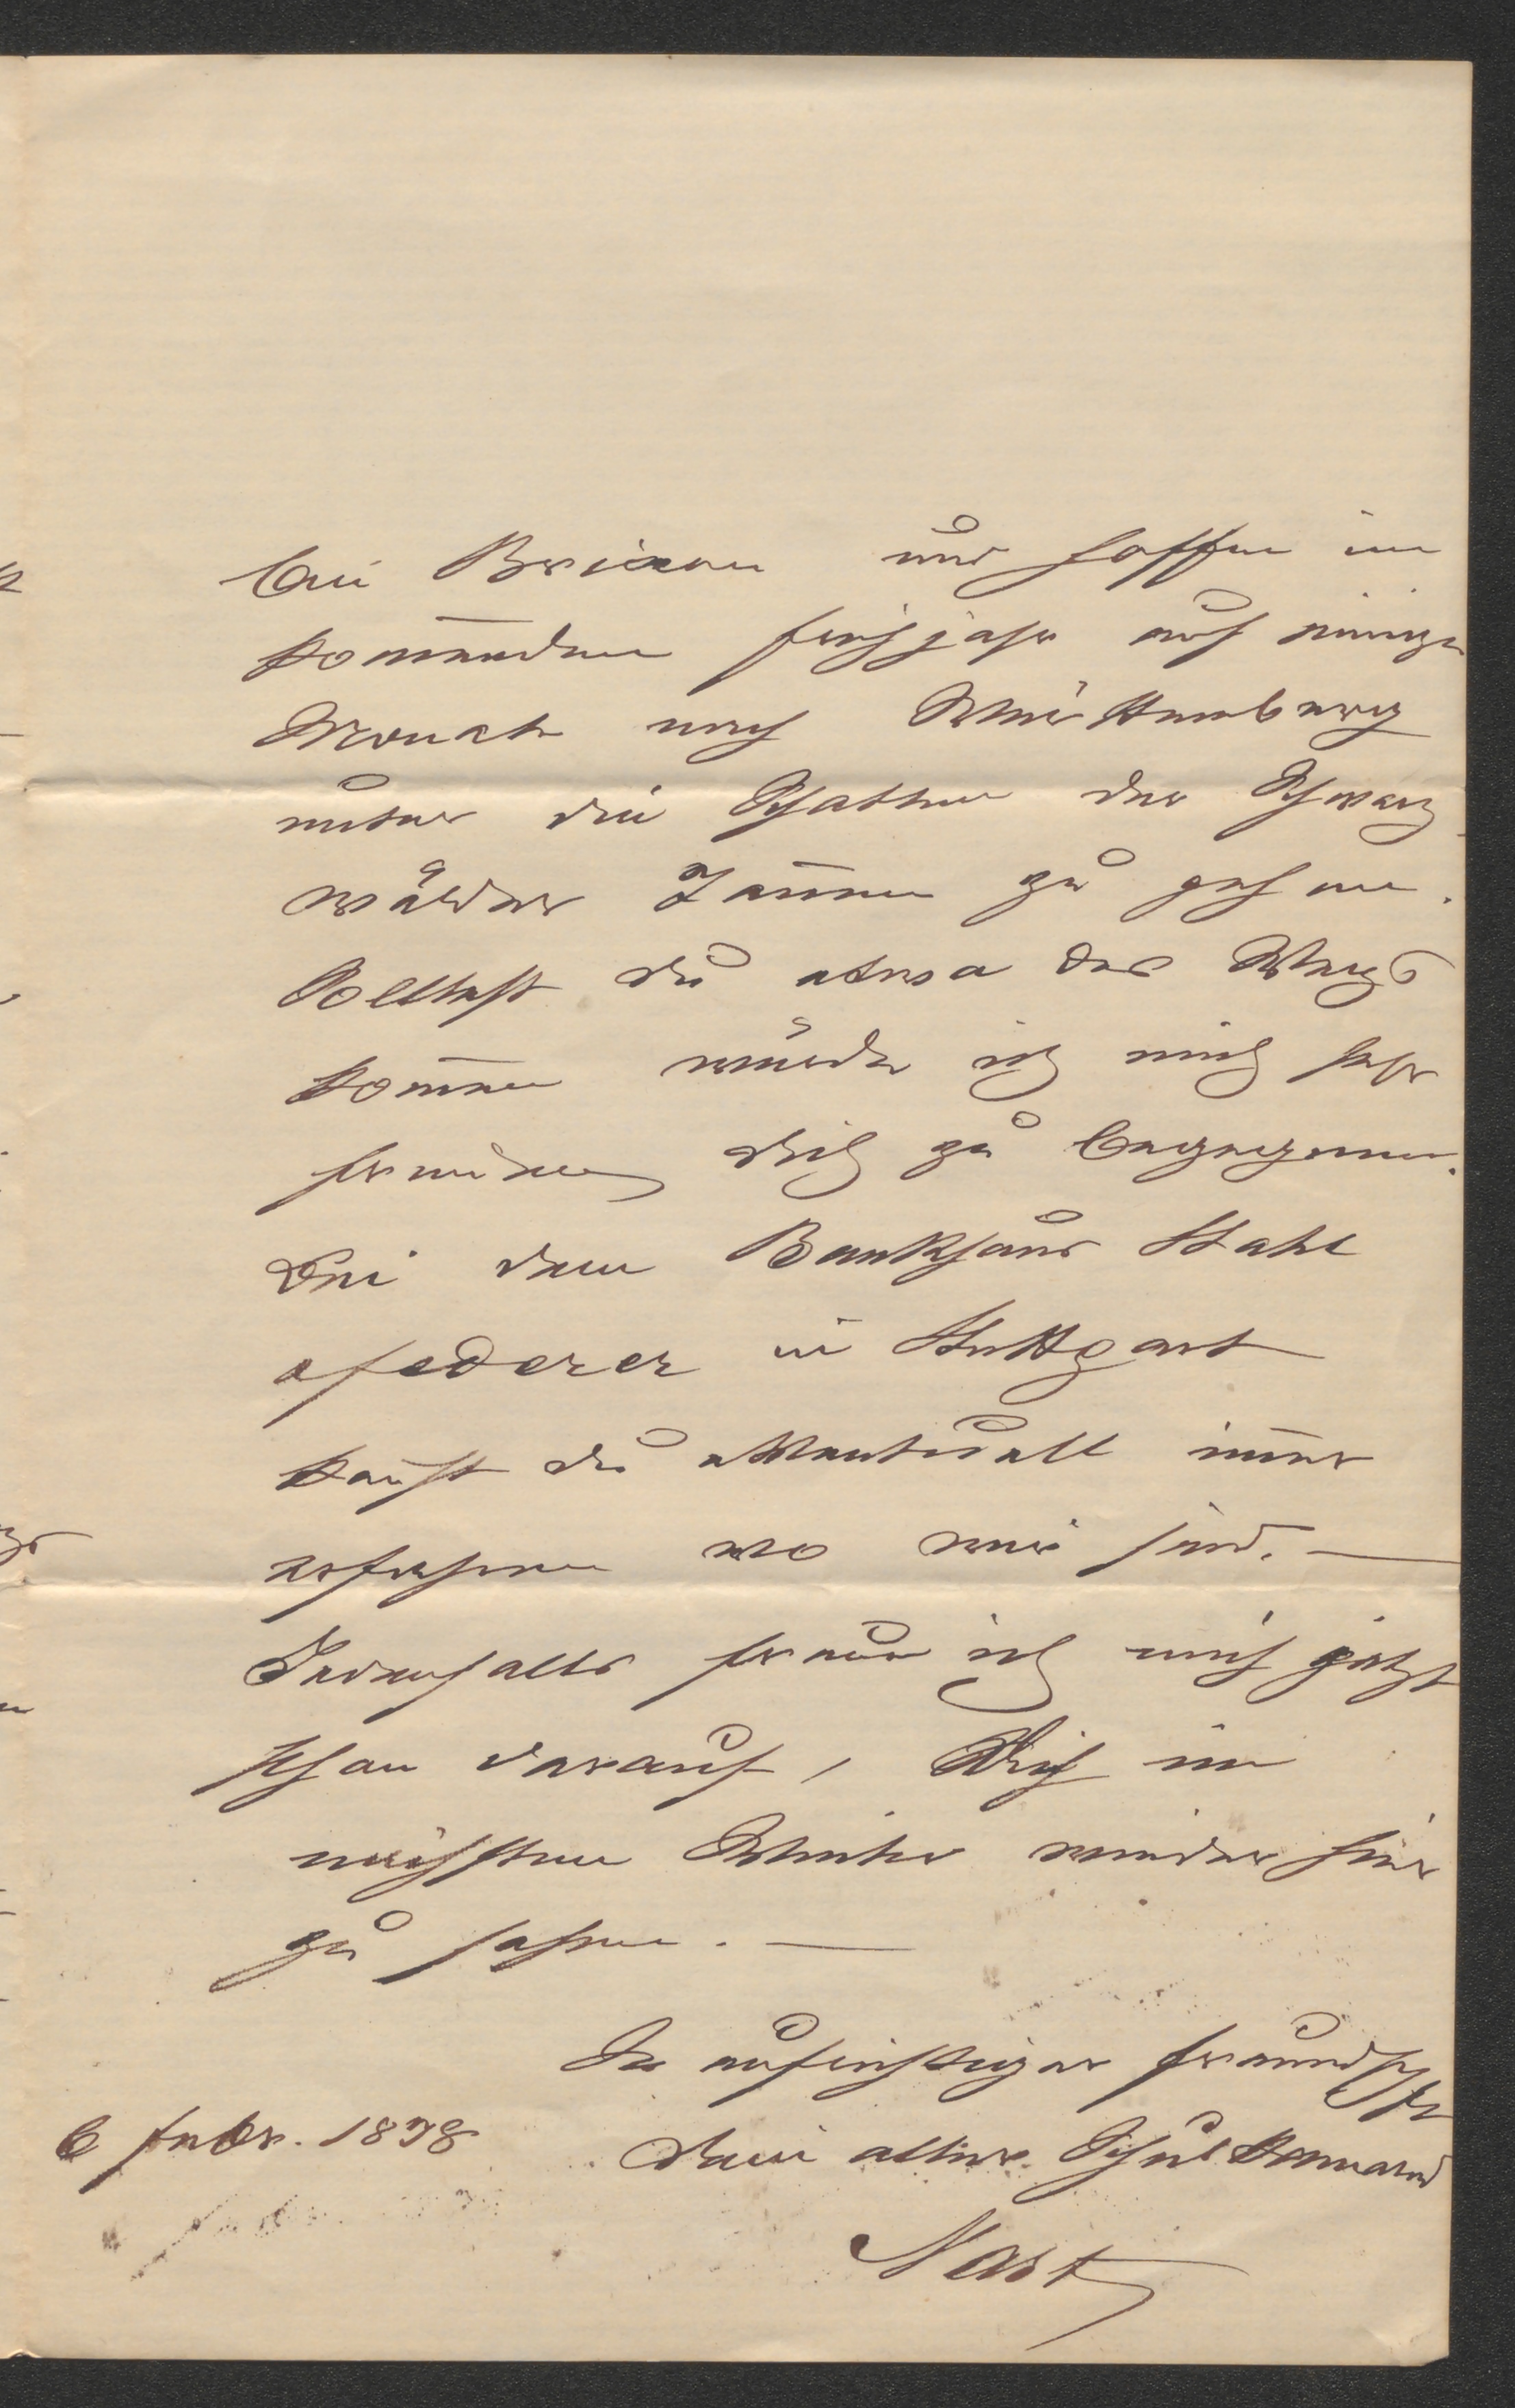 bei Brixen und hoffen im
kom̄enden Frühjahr auf einige
Monate nach Württemberg
unter die Schatten der Schwarz
wälder Tannen zu gehen.
Solltest du etwa des Wegs
kom̄en würde ich mich sehr
freuen dich zu begegnen.
Bei dem Bankhaus Stahl
& Federer in Stuttgart
kannst du eventuell im̄er
erfahren wo wir sind. —
Jedenfalls freue ich mich jetzt
schon darauf, Dich im
nächsten Winter wieder hier
zu sehen. —
In aufrichtiger Freundschaft
dein alter Schulkamerad
Nast
6 Febr. 1898